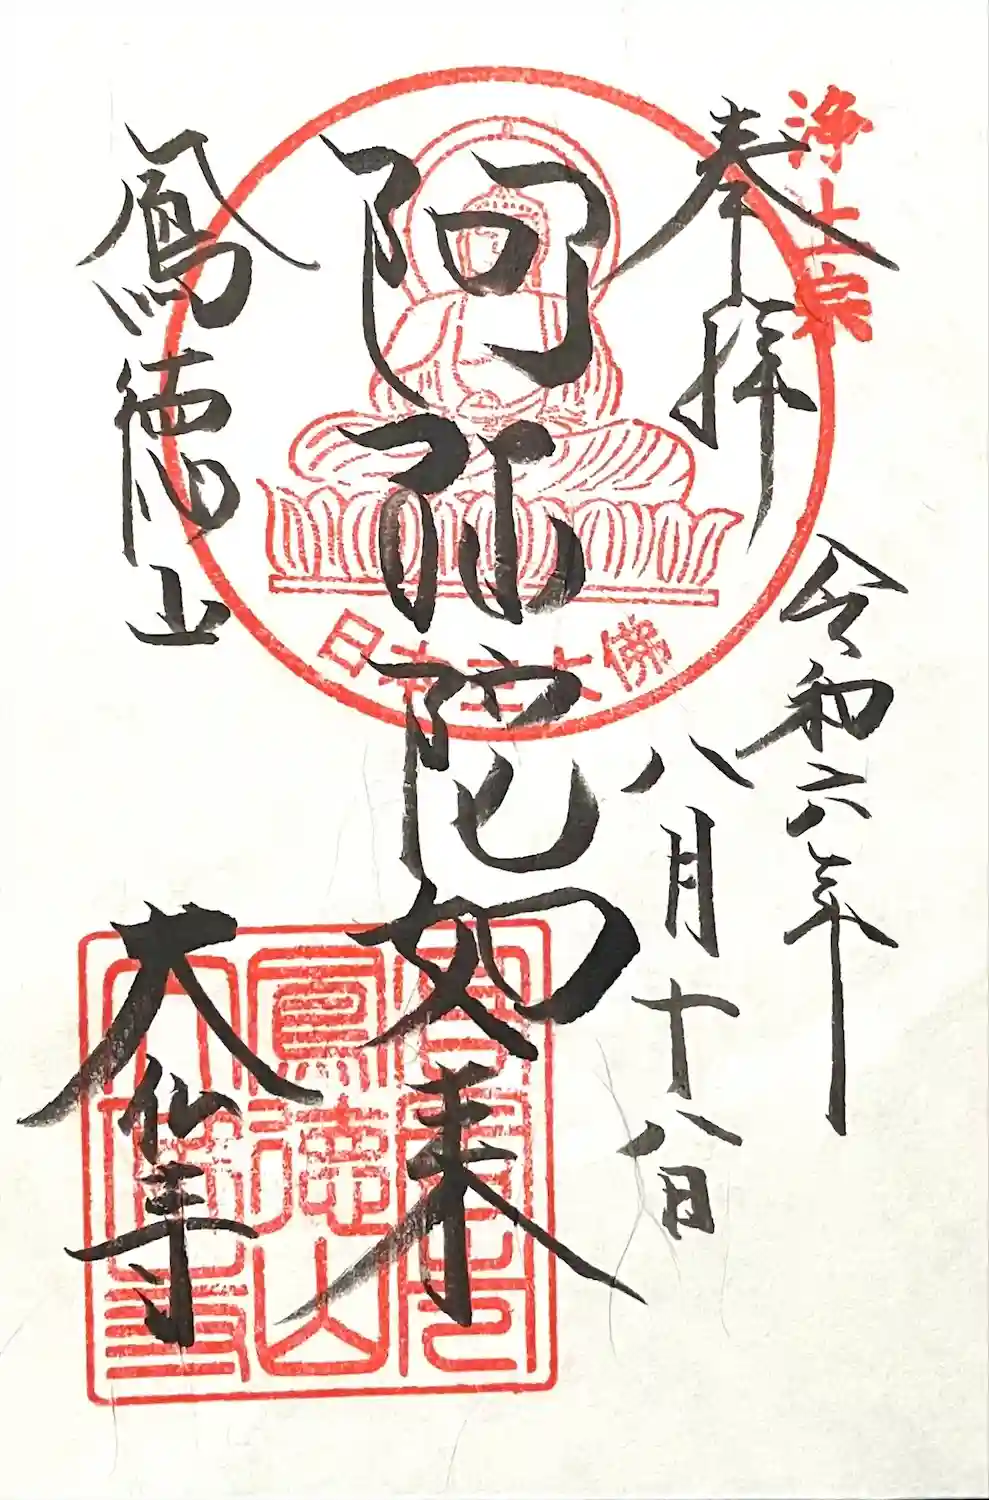 浄土宗
奉拝
令和六年
八月十八日
阿弥陀如来
日本三大佛
鳳徳山
大仙寺
鳳徳山